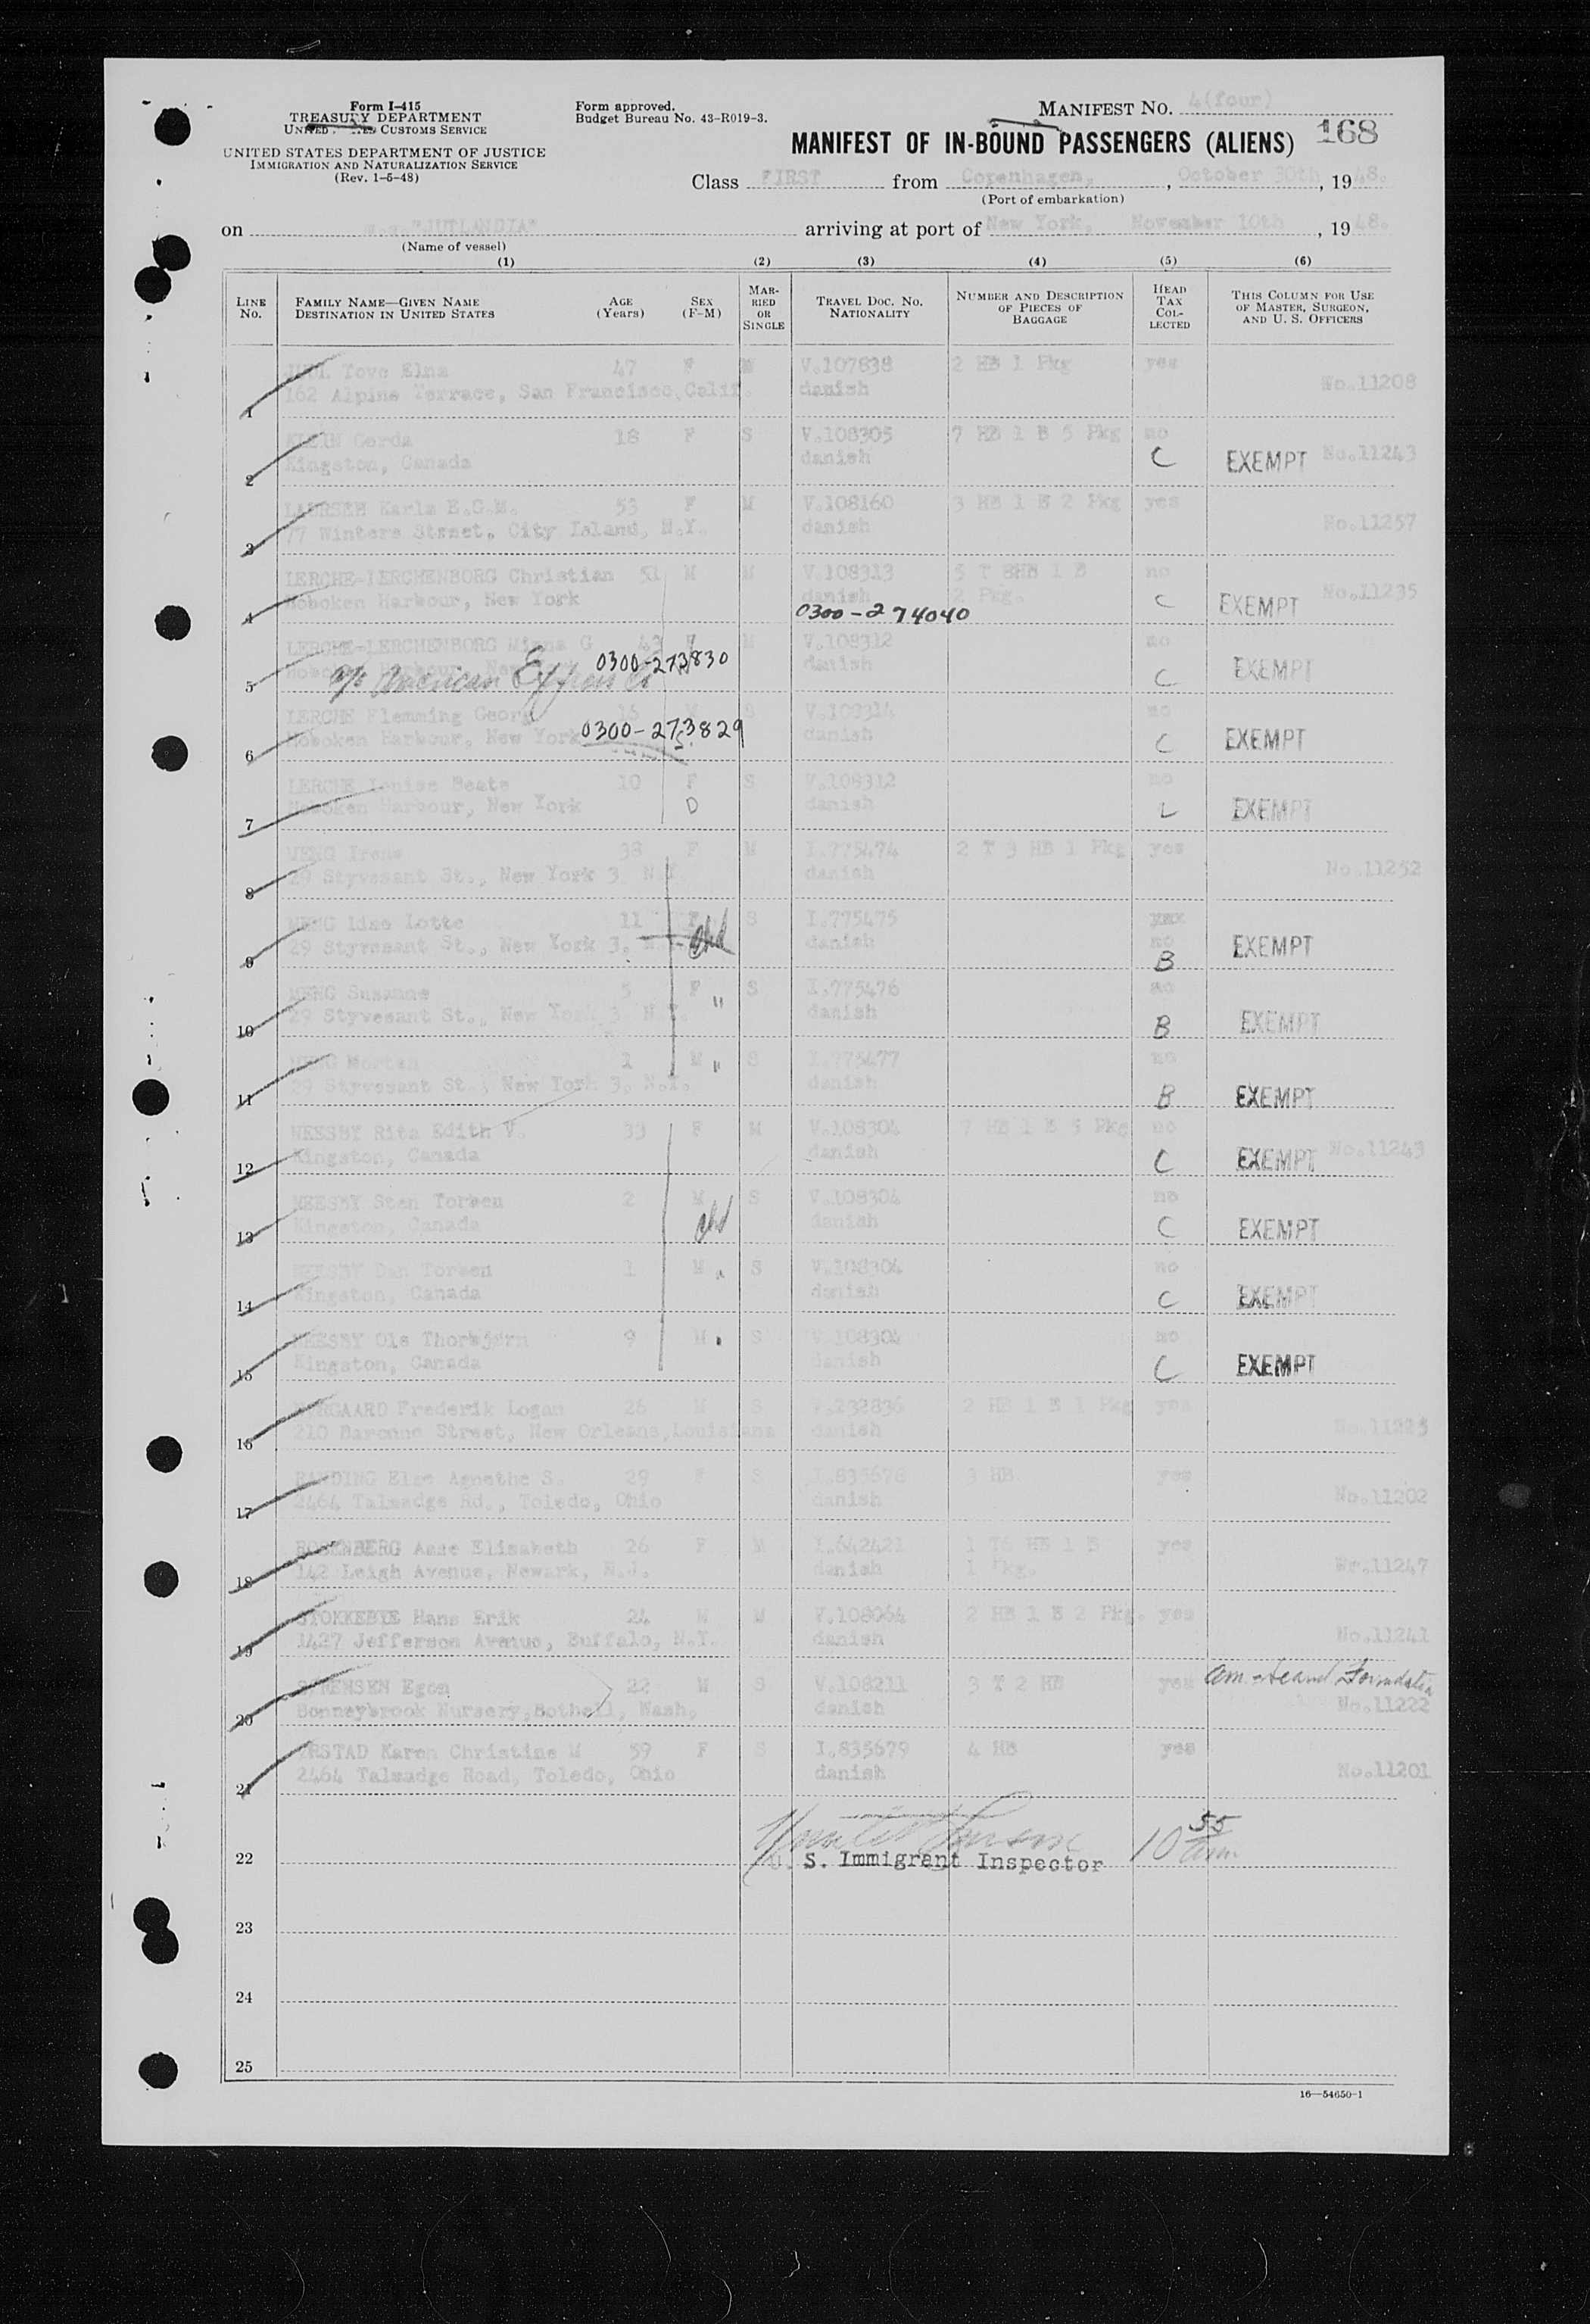 Form I-415
TREASURY DEPARTMENT
UNITED STATES CUSTOMS SERVICE
UNITED STATES DEPARTMENT OF JUSTICE
IMMIGRATION AND NATURALIZATION SERVICE
(Rev. 1-5-48)
Form approved.
Budget Bureau No. 43-R019-3.
MANIFEST No. 4(four)
MANIFEST OF IN-BOUND PASSENGERS (ALIENS) 168
Class FIRST from Copenhagen, , October 30th , 19 48.
(Port of embarkation)
on "JUTLANDIA" arriving at port of New York, November 10th , 19 48.
(Name of vessel)
(1) (2) (3) (4) (5) (6)
LINE No. FAMILY NAME—GIVEN NAME DESTINATION IN UNITED STATES AGE (Years) SEX (F-M) MARRIED OR SINGLE TRAVEL DOC. No. NATIONALITY NUMBER AND DESCRIPTION OF PIECES OF BAGGAGE HEAD TAX COLLECTED THIS COLUMN FOR USE OF MASTER, SURGEON, AND U. S. OFFICERS
JUUL Tove Elna 47 F M V.107838 2 HB 1 Pkg yes
1 162 Alpine Terrace, San Francisco,Calif. danish No.11208
KLEIN Gerda 18 F S V.108305 7 HB 1 B 5 Pkg no
2 Kingston, Canada danish C EXEMPT No.11243
LAURSEN Karla E.S.M. 53 F M V.108160 3 HB 1 B 2 Pkg yes
3 77 Winters Street, City Island, N.Y. danish No.11257
LERCHE-LERCHENBORG Christian 51 M M V.108313 5 T 8HB 1 B no
4 Hoboken Harbour, New York danish 2 Pkg. C EXEMPT No.11235
0300-274040
LERCHE-LERCHENBORG G 43 F M V.108312 no
5 Hoboken Harbour, New York 0300-273830 danish C EXEMPT
c/o American Express Co
LERCHE Flemming Georg M S V.108314 no
6 Hoboken Harbour, New York 0300-273829 danish C EXEMPT
LERCHE Louise Beate 10 F S V.108312 no
7 Hoboken Harbour, New York D danish EXEMPT
WENG Irene 38 F M I.775474 2 T 3 HB 1 Pkg yes
8 29 Styvesant St., New York 3 N.Y. danish No.11252
WENG Lise Lotte 11 F S I.775475 yes
9 29 Styvesant St., New York 3. N.Y. chd danish no B EXEMPT
WENG Susanne 5 F " S I.775476 no
10 29 Styvesant St., New York 3 N.Y. danish B EXEMPT
WENG Morten 1 M " S I.775477 no
11 29 Styvesant St., New York 3. N.Y. danish B EXEMPT
NEESBY Rita Edith V. 33 F M V.108304 7 HB 1 B 5 Pkg no
12 Kingston, Canada danish C EXEMPT No.11243
NEESBY Sten Torben 2 M S V.108304 no
13 Kingston, Canada chd danish C EXEMPT
NEESBY Dan Torben 1 M S V.108304 no
14 Kingston, Canada danish C EXEMPT
NEESBY Ole Thorbjørn 9 M S V.108304 no
15 Kingston, Canada danish C EXEMPT
Frederik Logan 26 M S V.232836 2 HB 1 B 1 Pkg yes
16 210 Baronne Street, New Orleans,Louisiana danish
Else Agnethe S. 29 F S I.835678 3 HB yes
17 2464 Talmadge Rd., Toledo, Ohio danish No.11202
ROSENBERG Anne Elisabeth 26 F M I.642421 1 T6 HB 1 B yes
18 142 Leigh Avenue, Newark, N.J. danish 1 Pkg. Nr.11247
STOKKEBYE Hans Erik 24 M M V.108064 2 HB 1 B 2 Pkg. yes
19 1427 Jefferson Avenue, Buffalo, N.Y. danish No.11241
SØRENSEN Egon 22 M S V.108211 3 T 2 HB yes Am-Scand Foundation
20 Bonneybrook Nursery,Bothell, Wash. danish No.11222
ØRSTAD Karen Christine M 59 F S I.835679 4 HB yes
21 2464 Talmadge Road, Toledo, Ohio danish No.11201
22 U. S. Immigrant Inspector 10 55 am
23
24
25
16—54650-1